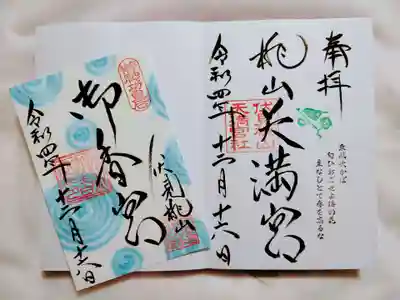 奉拝
桃山天満宮
令和四年十二月十六日
東風吹かば
匂ひおこせよ梅の花
主なしとて春を忘るな
伏見桃山
御香宮
令和四年十二月十六日